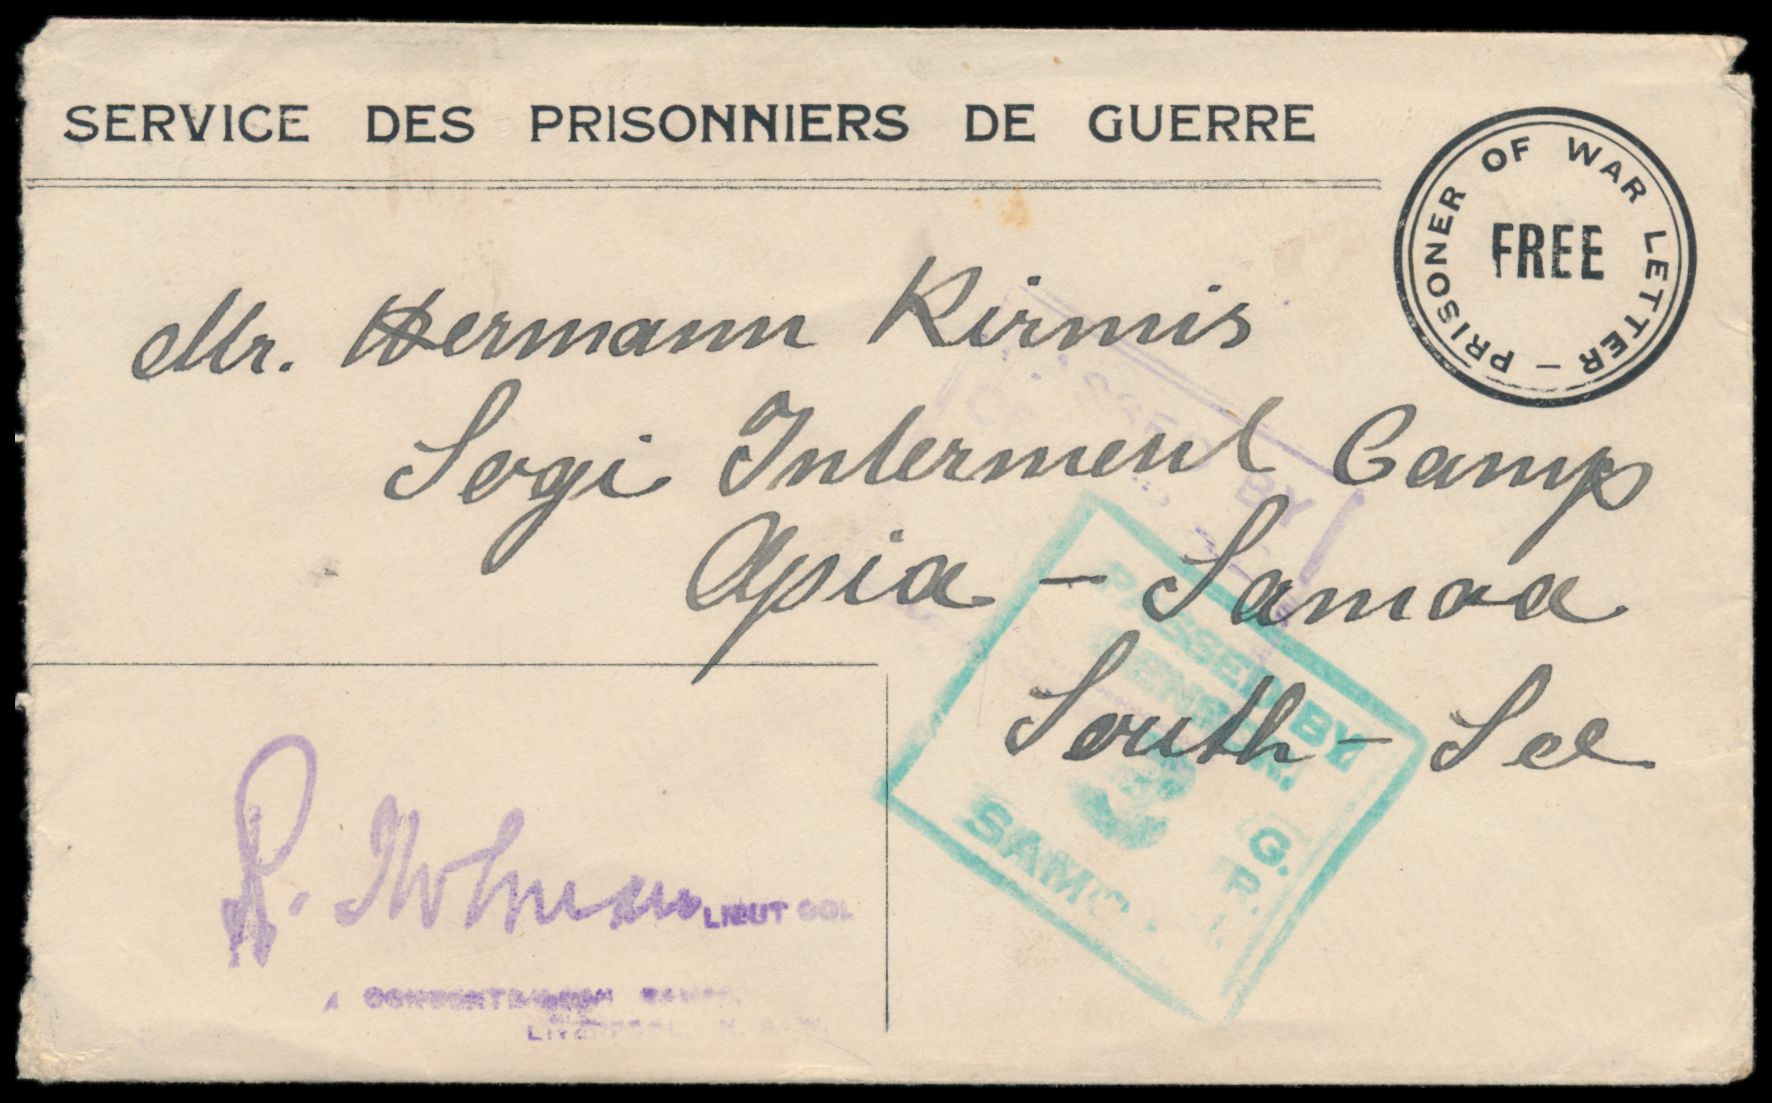 SERVICE DES PRISONNIERS DE GUERRE
PRISONER OF WAR LETTER –
FREE
Mr. Hermann Kirmis
Sogi Interment Camp
Apia – Samoa
South – See
PASSED BY
PASSED BY
CENSOR.
3
SAMO
G.
P.
R. Holman LIEUT COL
LIVERPOOL, N. S. W.